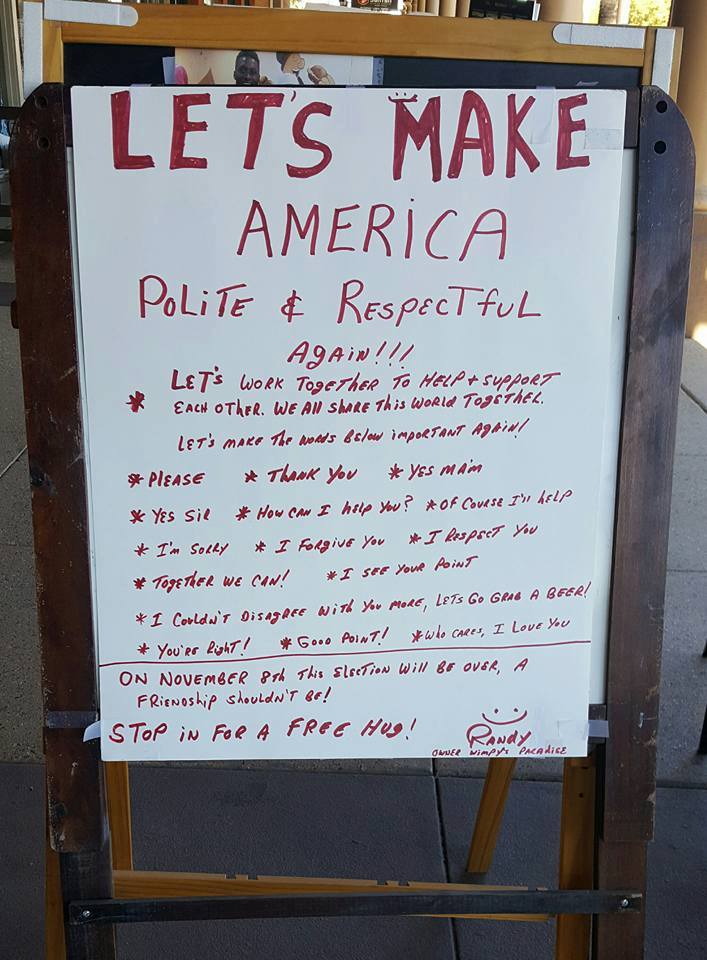 LET'S MAKE
AMERICA
POLITE & RESPECTFUL
AGAIN!!!
* LET'S WORK TOGETHER TO HELP + SUPPORT
EACH OTHER. WE ALL SHARE THIS WORLD TOGETHER.
LET'S MAKE THE WORDS BELOW IMPORTANT AGAIN!
* PLEASE * THANK YOU * YES MA'M
* YES SIR * HOW CAN I HELP YOU? * OF COURSE I'll HELP
* I'M SORRY * I FORGIVE YOU * I RESPECT YOU
* TOGETHER WE CAN! * I SEE YOUR POINT
* I COULDN'T DISAGREE WITH YOU MORE, LETS GO GRAB A BEER!
* YOU'RE RIGHT! * GOOD POINT! * WHO CARES, I LOVE YOU
ON NOVEMBER 8th THIS ELECTION WILL BE OVER, A
FRIENDSHIP SHOULDN'T BE!
STOP IN FOR A FREE HUG! RANDY
OWNER WIMPY'S PARADISE